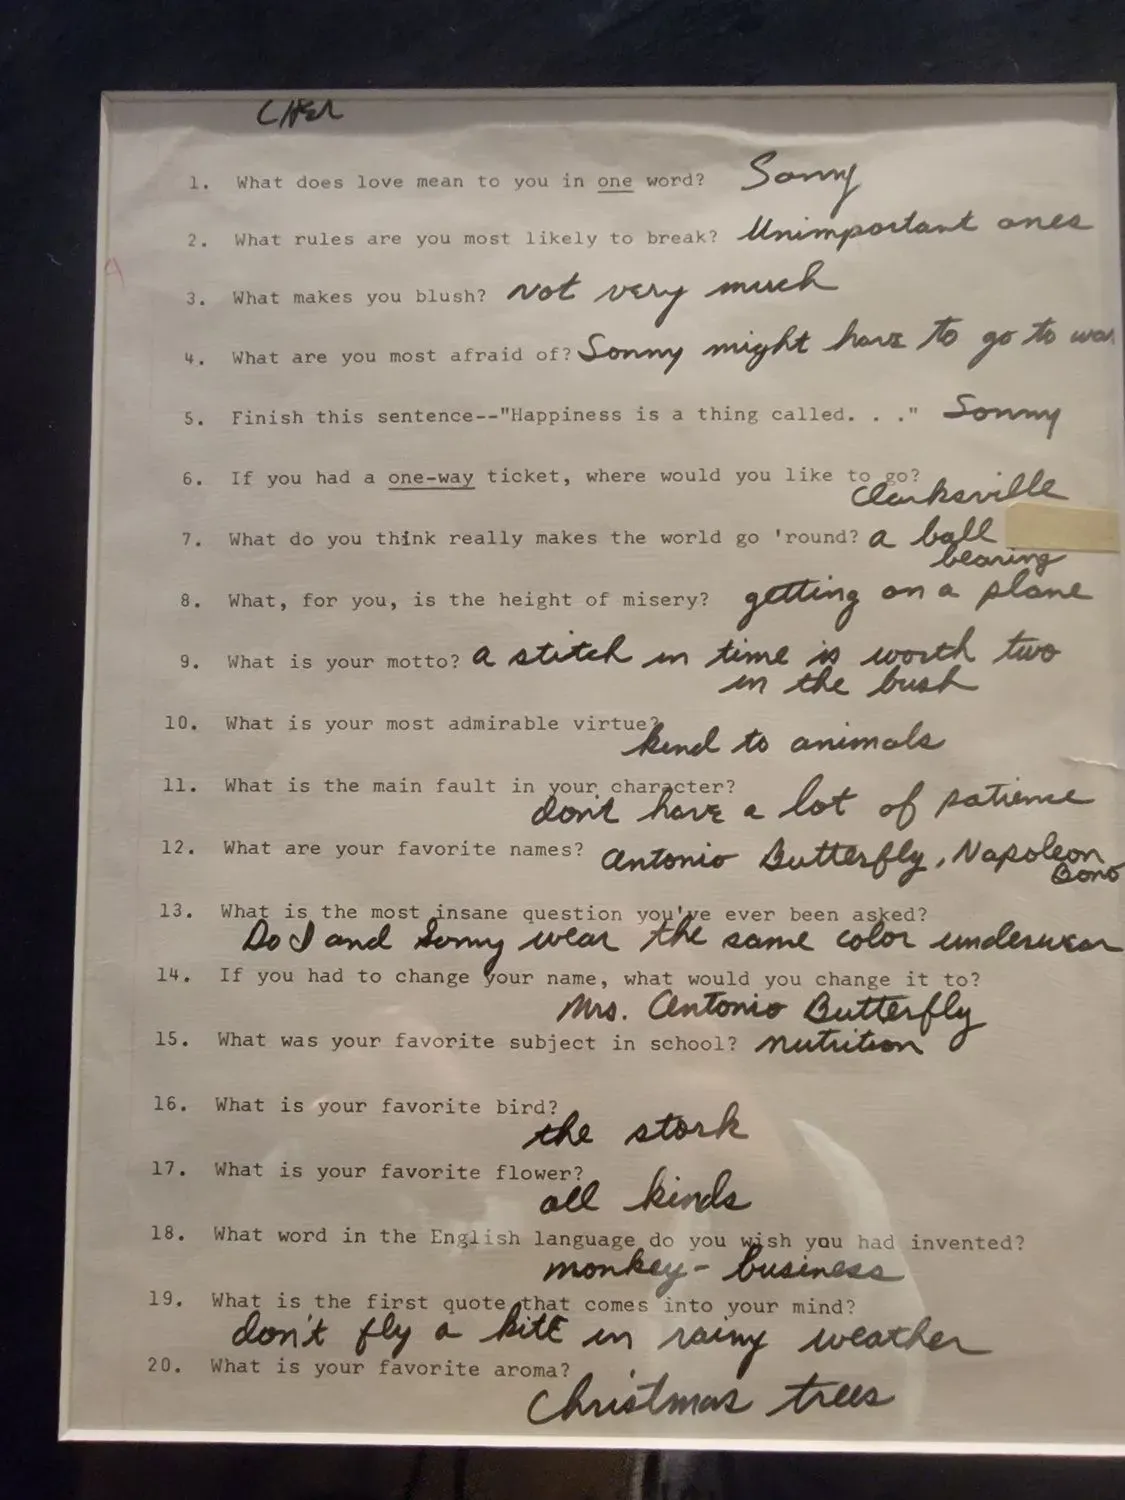 CHER
1. What does love mean to you in one word? Sonny
2. What rules are you most likely to break? Unimportant ones
3. What makes you blush? not very much
4. What are you most afraid of? Sonny might have to go to war
5. Finish this sentence--"Happiness is a thing called. . ." Sonny
6. If you had a one-way ticket, where would you like to go?
Clarksville
7. What do you think really makes the world go 'round? a ball
bearing
8. What, for you, is the height of misery? getting on a plane
9. What is your motto? a stitch in time is worth two
in the bush
10. What is your most admirable virtue?
kind to animals
11. What is the main fault in your character?
don't have a lot of patience
12. What are your favorite names? Antonio Butterfly, Napoleon
Bono
13. What is the most insane question you've ever been asked?
Do I and Sonny wear the same color underwear
14. If you had to change your name, what would you change it to?
Mrs. Antonio Butterfly
15. What was your favorite subject in school? nutrition
16. What is your favorite bird?
the stork
17. What is your favorite flower?
all kinds
18. What word in the English language do you wish you had invented?
monkey-business
19. What is the first quote that comes into your mind?
don't fly a kite in rainy weather
20. What is your favorite aroma?
Christmas trees